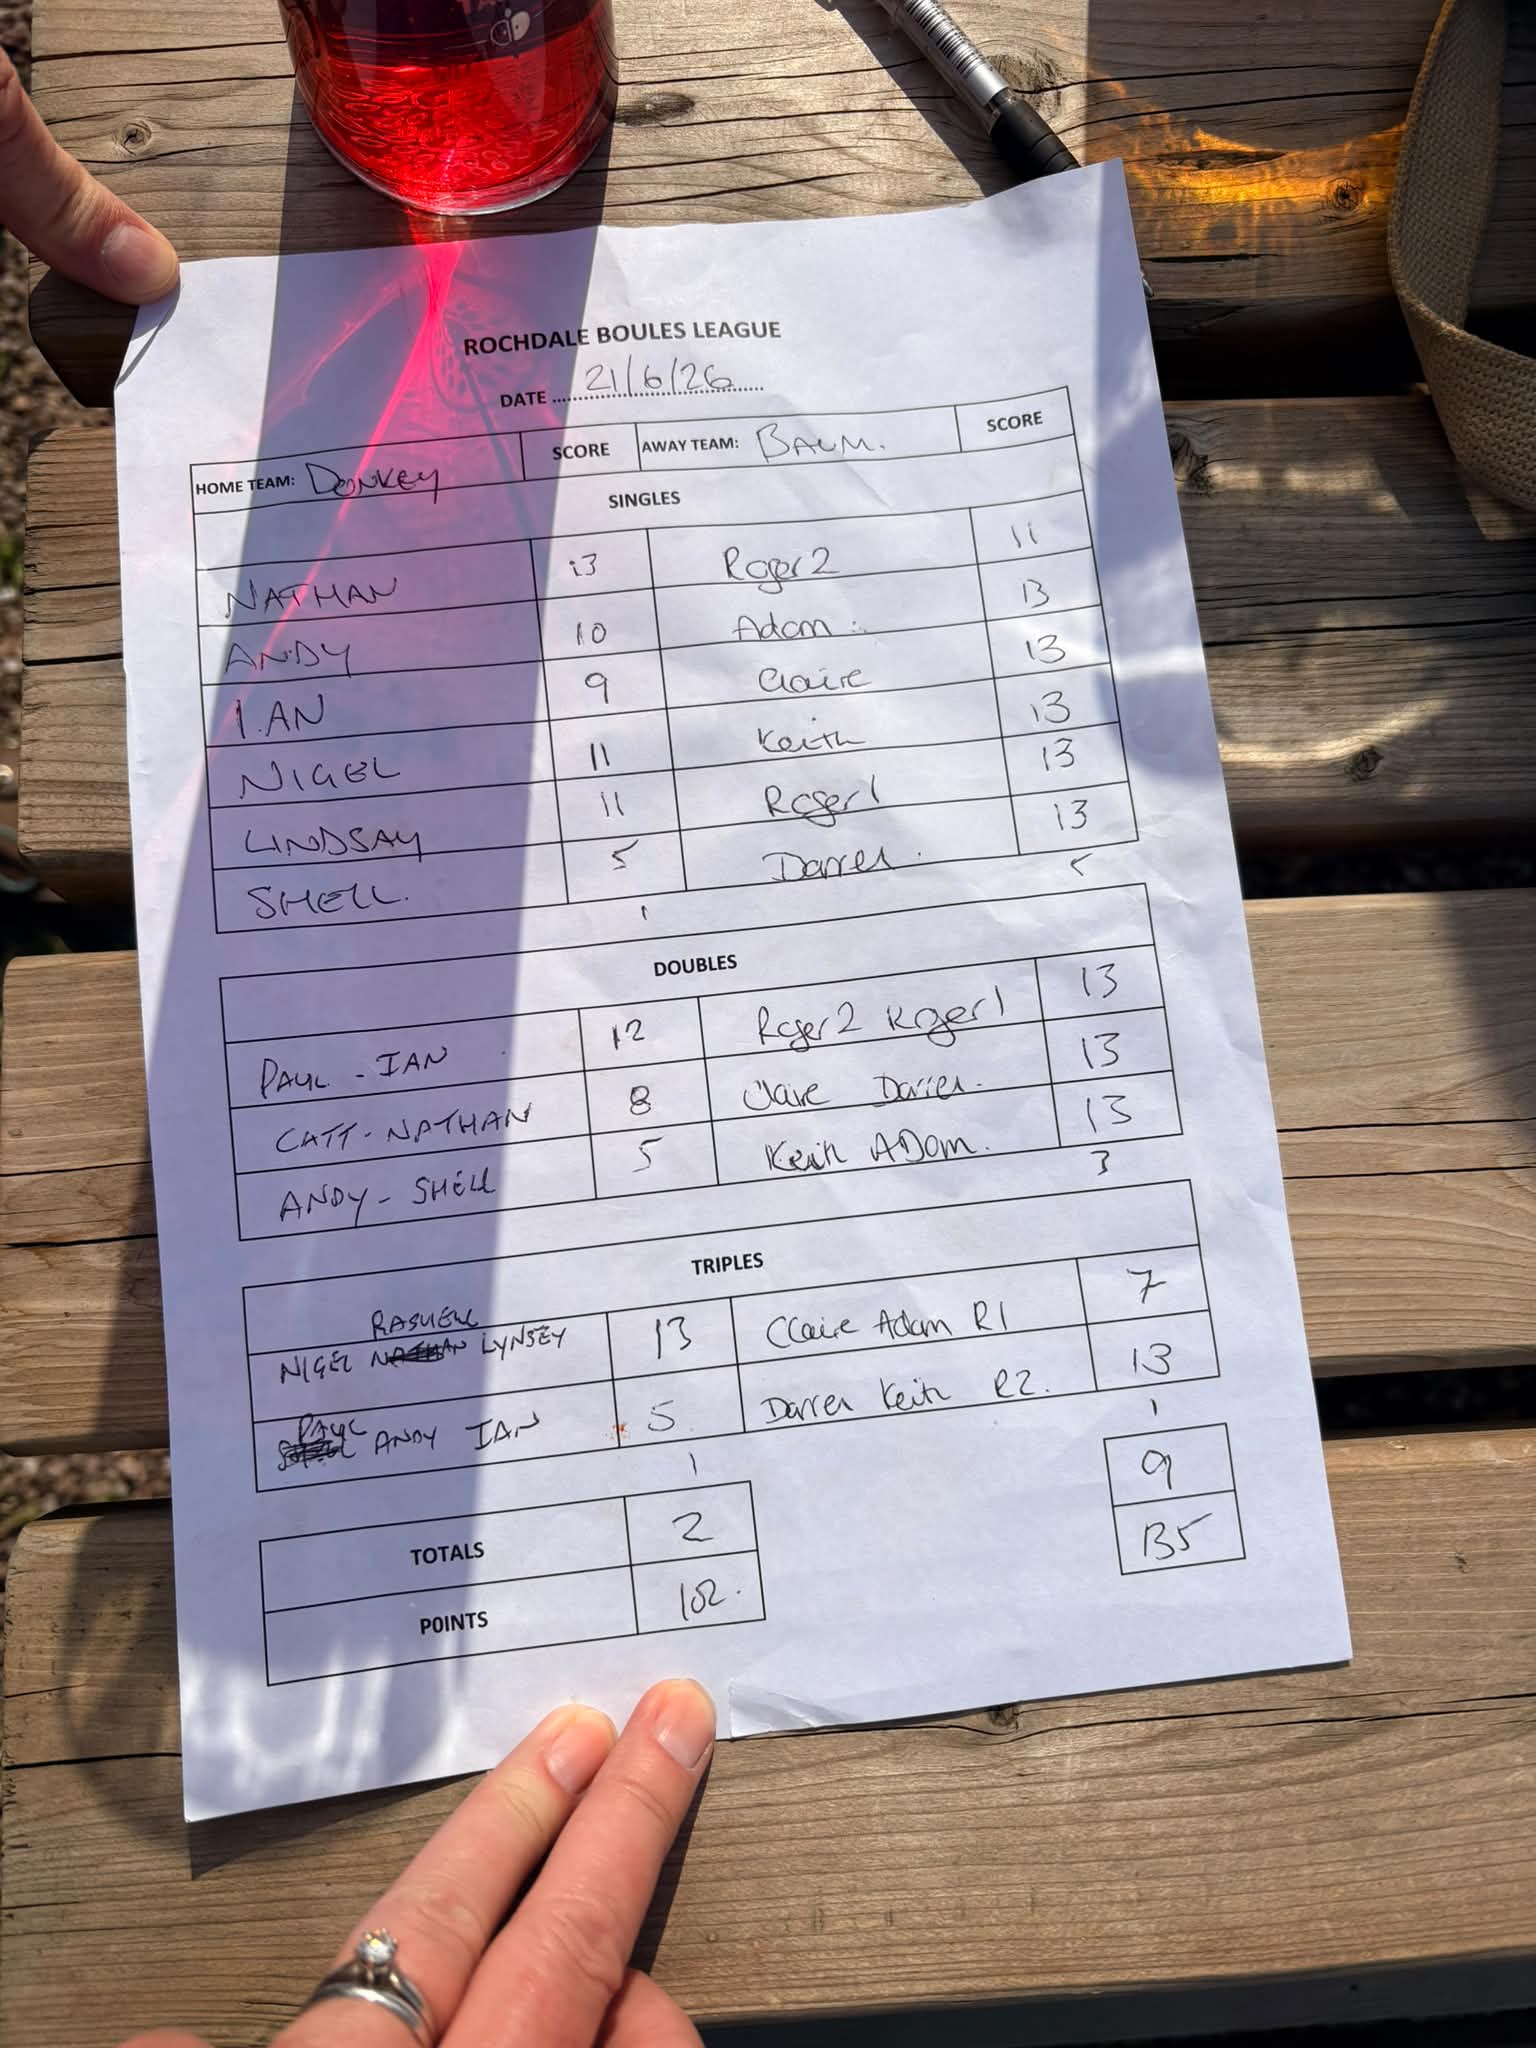 ROCHDALE BOULES LEAGUE
DATE 21/6/26
HOME TEAM: DONKEY SCORE AWAY TEAM: BAUM. SCORE
SINGLES
NATHAN 13 Roger 2 11
ANDY 10 Adam 13
IAN 9 Claire 13
NIGEL 11 Keith 13
LINDSAY 11 Roger 1 13
SHELL. 5 Darren. 13
1 5
DOUBLES
PAUL - IAN 12 Roger 2 Roger 1 13
CATT - NATHAN 8 Claire Darren. 13
ANDY - SHELL 5 Keith ADam. 13
3
TRIPLES
RASHELL
NIGEL NATHAN LYNSEY 13 Claire Adam R1 7
PAUL
ANDY IAN 5. Darren Keith R2. 13
1 1
TOTALS 2 9
POINTS 102. 135